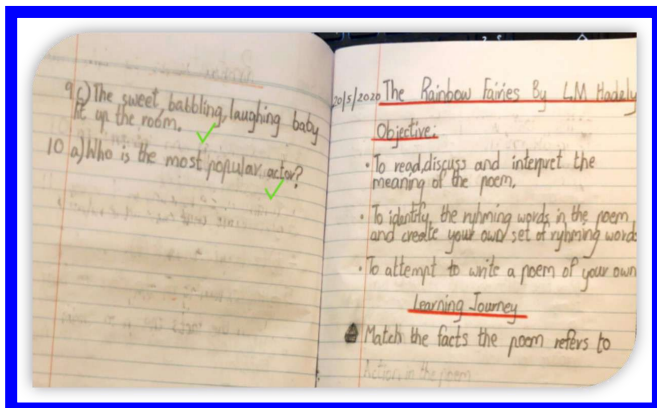 9 c) The sweet, babbling, laughing baby
lit up the room.
10 a) Who is the most popular actor?
20/5/2020 The Rainbow Fairies By L.M Hadely
Objective:
• To read, discuss and interpret the
meaning of the poem.
• To identify the ryhming words in the poem
and create your own set of ryhming words
• To attempt to write a poem of your own
Learning Journey
Match the facts the poem refers to
Action in the poem